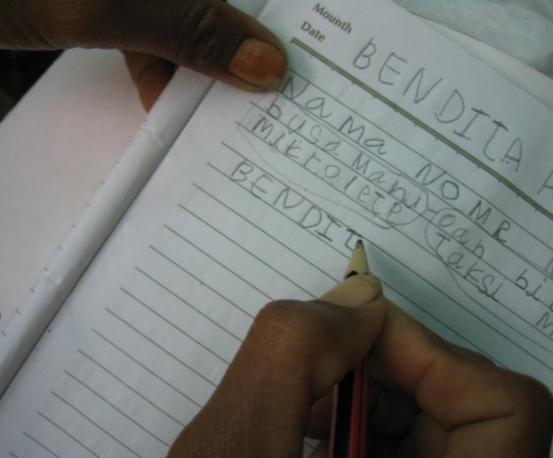 Mounth
Date
BENDITA
Nama NO MR
buga Manu-oan bi
Mikrolete taksi M
BENDIT